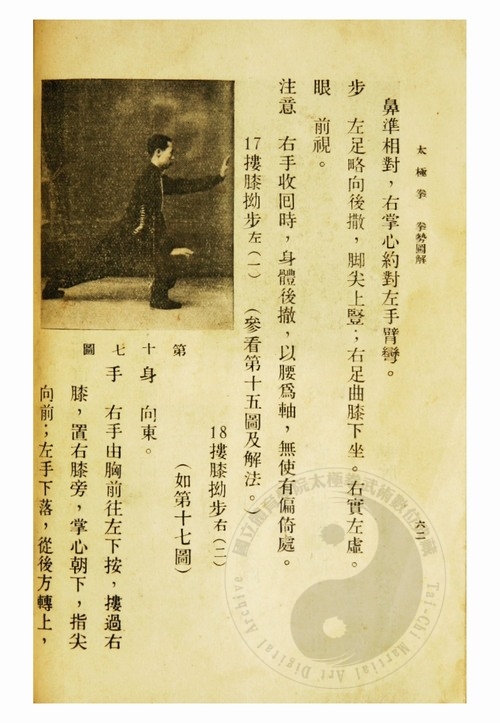 太極拳　拳勢圖解
六二
鼻準相對，右掌心約對左手臂彎。
步　左足略向後撤，脚尖上豎；右足曲膝下坐。右實左虛。
眼　前視。
注意　右手收囘時，身體後撤，以腰爲軸，無使有偏倚處。
17摟膝拗步左（一）　（參看第十五圖及解法。）
18摟膝拗步右（二）
（如第十七圖）
第十七圖
身　向東。
手　右手由胸前往左下按，摟過右
膝，置右膝旁，掌心朝下，指尖
向前；左手下落，從後方轉上，
國立體育學院太極拳武術數位典藏
Tai-Chi Martial Art Digital Archive